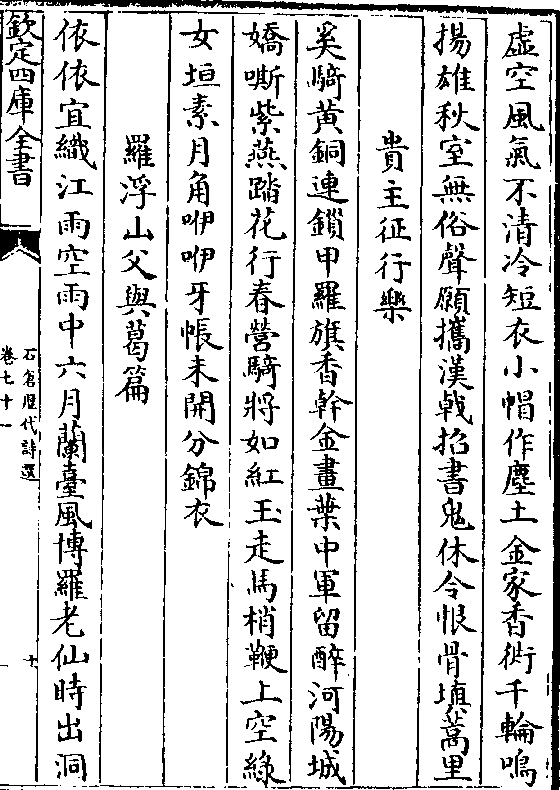 虚空風氣不清冷短衣小帽作塵土金家香衖千輪鳴
揚雄秋室無俗聲願攜漢戟招書鬼休令恨骨塡蒿里
貴主征行樂
奚騎黃銅連鎖甲羅旗香幹金畫葉中軍留醉河陽城
嬌嘶紫燕踏花行春營騎將如紅玉走馬梢鞭上空綠
女垣素月角咿咿牙帳未開分錦衣
羅浮山父與葛篇
依依宜織江雨空雨中六月蘭臺風博羅老仙時出洞
欽定四庫全書
石倉歷代詩選
卷七十一
十